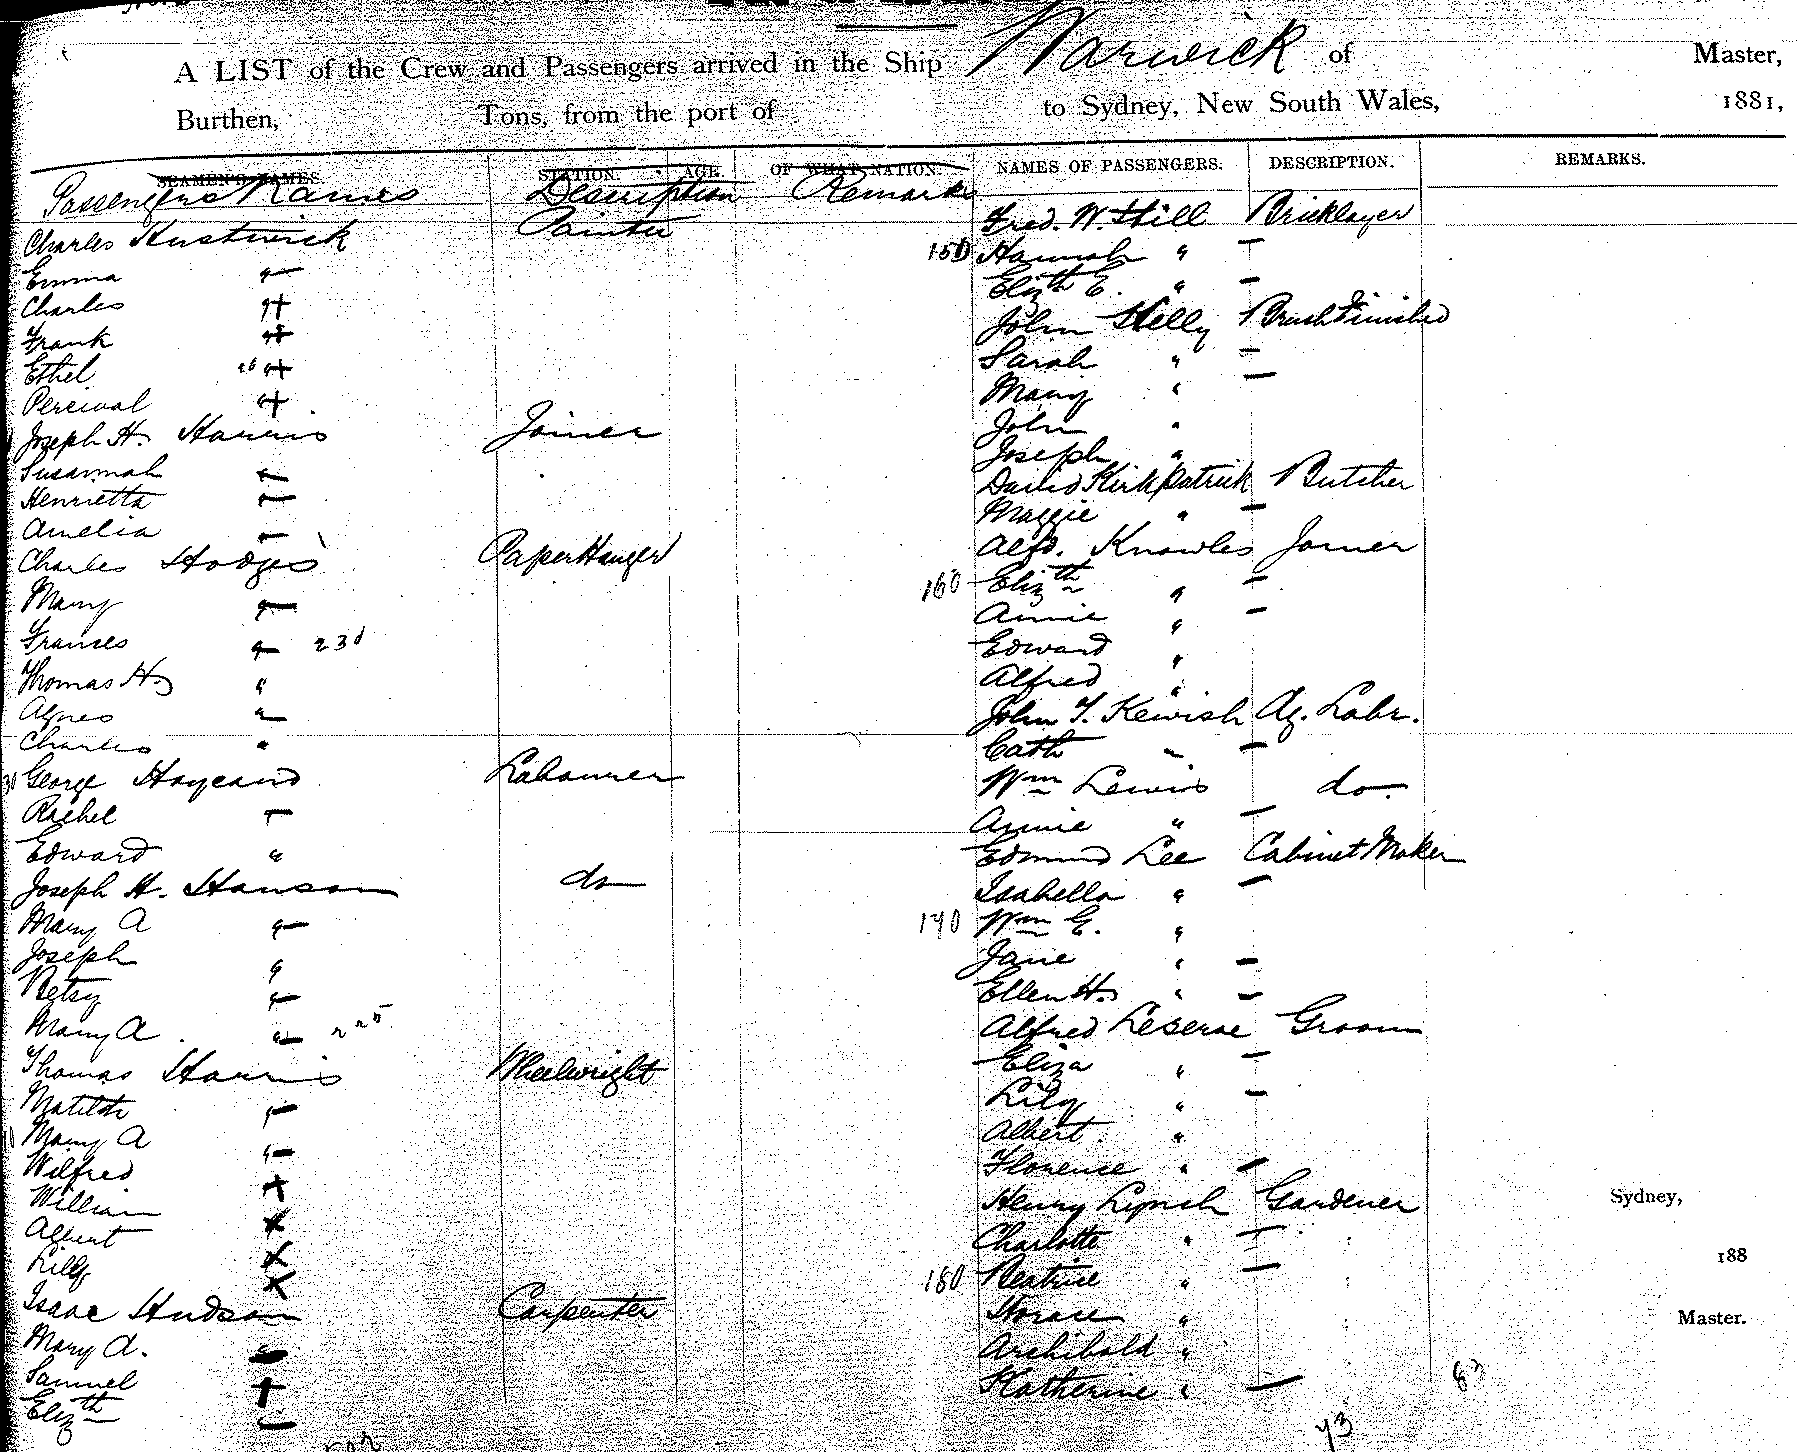 A LIST of the Crew and Passengers arrived in the Ship Warwick of Master,
Burthen, Tons, from the port of to Sydney, New South Wales, 1881,
SEAMEN'S NAMES. STATION. AGE. OF WHAT NATION.
Passengers Names Description Remarks
Charles Hustwick Painter
Emma "
Charles "
Frank "
Ethel "
Percival "
Joseph H. Harris Joiner
Susannah "
Henrietta "
Amelia "
Charles Hodges PaperHanger
Mary "
Frances "
Thomas H. "
Agnes "
Charles "
George Labourer
Rachel "
Edward "
Joseph H. Hanson do
Mary A "
Joseph "
Betsy "
Mary A "
Thomas Harris Wheelwright
Matilda "
Mary A "
Wilfred
William
Albert
Lilly
Isaac Hudson Carpenter
Mary A.
Samuel
Elizth
NAMES OF PASSENGERS. DESCRIPTION. REMARKS.
Fred. W. Hill Bricklayer
150 Hannah "
Elizth E. "
John Helly Brush Finisher
Sarah "
Mary "
John "
Joseph "
David Kirkpatrick Butcher
Maggie "
Alfd. Knowles Joiner
160 Elizth "
Annie "
Edward "
Alfred "
John T. Kewish Ag. Labr.
Cath "
Wm Lewis do.
Annie "
Edmund Lee Cabinet Maker
Isabella "
170 Wm E. "
Jane "
Ellen H. "
Alfred Groom
Eliza "
Lily "
Albert "
Florence "
Henry Lynch Gardener
Charlotte "
180 Beatrice "
Horace "
Archibald "
Katherine "
Sydney,
188
Master.
73